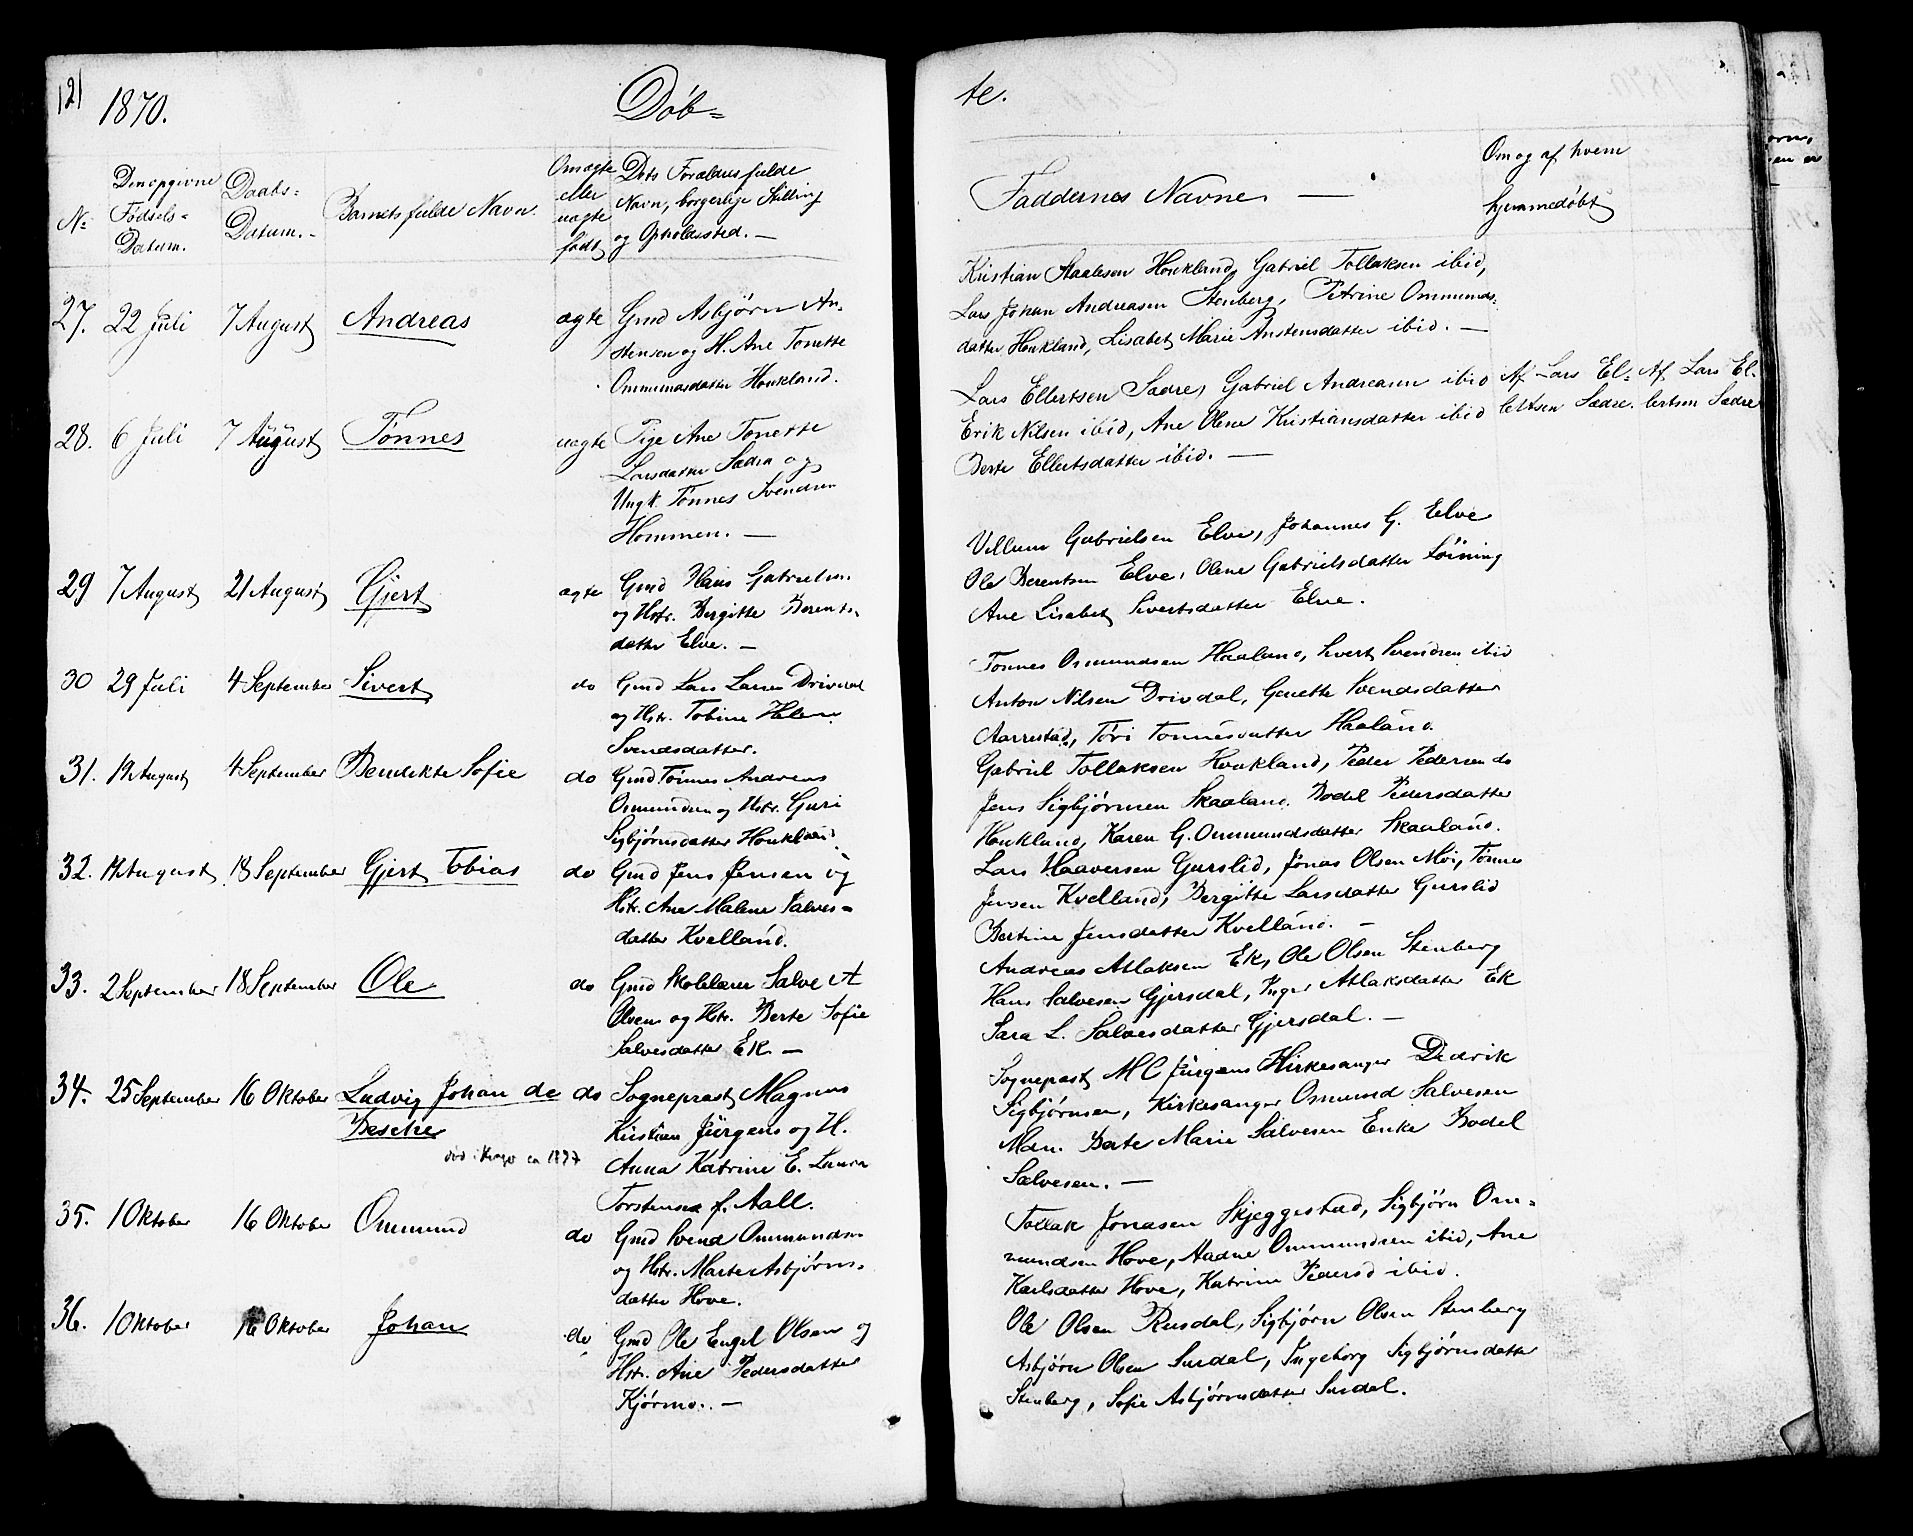 121
1870.
Döb=
te.
No
Den opgivne
Fødsels=
Datum.
Daabs=
Datum.
Barnets fulde Navn.
Om ægte
eller
uægte
født
Dets Forældres fulde
Navn, borgerlige Stilling
og Opholdssted. —
Faddernes Navne. —
Om og af hvem
hjemmedøbt
27. 22 Juli 7 August Andreas ægte
Gmd Asbjørn An-
stensen og H. Ane Tonette
Ommundsdatter Houkland.
Kristian Staalesen Houkland, Gabriel Tollaksen ibid,
Lars Johan Andreasen Stenberg, Petrine Ommunds-
datter Houkland, Lisabet Marie Anstensdatter ibid. —
28. 6 Juli 7 August Tønnes uægte
Pige Ane Tonette
Larsdatter Sædre og
Ungk. Tønnes Svendsen
Hommen. —
Lars Ellertsen Sædre, Gabriel Andreasen ibid
Erik Nilsen ibid, Ane Olene Kristiansdatter ibid
Berte Ellertsdatter ibid. —
Af Lars El=
lertsen Sædre.
Af Lars El-
lertsen Sædre
29 7 August 21 August Gjert ægte
Gmd Hans Gabrielsen
og Hstr. Bergitte Berents-
datter Elve. —
Villum Gabrielsen Elve, Johannes G. Elve
Ole Berentsen Elve, Olene Gabrielsdatter Løining
Ane Lisabet Sivertsdatter Elve.
30 29 Juli 4 September Sivert do
Gmd Lars Larsen Drivdal
og Hstr. Tobine Helene
Svendsdatter.
Tønnes Osmundsen Haaland, Sivert Svendsen ibid
Anton Nilsen Drivdal, Gurette Svendsdatter
Aarrestad, Töri Tønnesdatter Haaland.
31. 19 August 4 September Bendikte Sofie do
Gmd Tønnes Andreas
Osmundsen og Hstr. Guri
Sigbjørnsdatter Houkland.
Gabriel Tollaksen Houkland, Peder Pedersen do
Jens Sigbjørnsen Skaaland, Bodel Pedersdatter
Houkland, Karen G. Ommundsdatter Skaaland.
32. 19 August 18 September Gjert Tobias do
Gmd Jens Jensen og
Hstr. Ane Malene Salves=
datter Kvelland.
Lars Haaversen Gurslid, Jonas Olsen Moi, Tønnes
Jensen Kvelland, Bergitte Larsdatter Gurslid
Bertine Jensdatter Kvelland. —
33. 2 September 18 September Ole do
Gmd Skolelærer Salve A
Olsen og Hstr. Berte Sofie
Salvesdatter Ek. —
Andreas Atlaksen Ek, Ole Olsen Stenberg
Hans Salvesen Gjersdal, Inger Atlaksdatter Ek
Sara L. Salvesdatter Gjersdal. —
34. 25 September 16 Oktober Ludvig Johan de do
Besche
död i Kongo ca 1897
Sogneprest Magnus
Kristian Jürgens og H.
Anna Katrine E. Laura
Torstensen f. Aall.
Sogneprest M C Jürgens Kirkesanger Didrik
Sigbjørnsen, Kirkesanger Osmund Salvesen
Mdm. Berte Marie Salvesen Enke Bodel
Salvesen. —
35. 1 Oktober 16 Oktober Ommund do
Gmd Svend Ommundsen
og Hstr. Marte Asbjørns-
datter Hove.
Tollak Jonasen Skjeggestad, Sigbjørn Om=
mundsen Hove, Aadne Ommundsen ibid, Ane
Karlsdatter Hove, Katrine Pedersd ibid.
36. 1 Oktober 16 Oktober Johan do
Gmd Ole Engel Olsen og
Hstr. Ane Pedersdatter
Kjørmo. —
Ole Olsen Rusdal, Sigbjørn Olsen Stenberg
Asbjørn Olsen Surdal, Ingeborg Sigbjørnsdatter
Stenberg, Sofie Asbjørnsdatter Surdal.